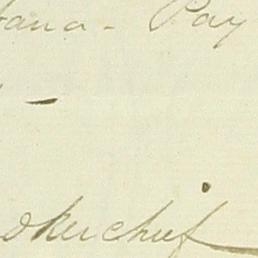 tana - Pay
-
dkerchief